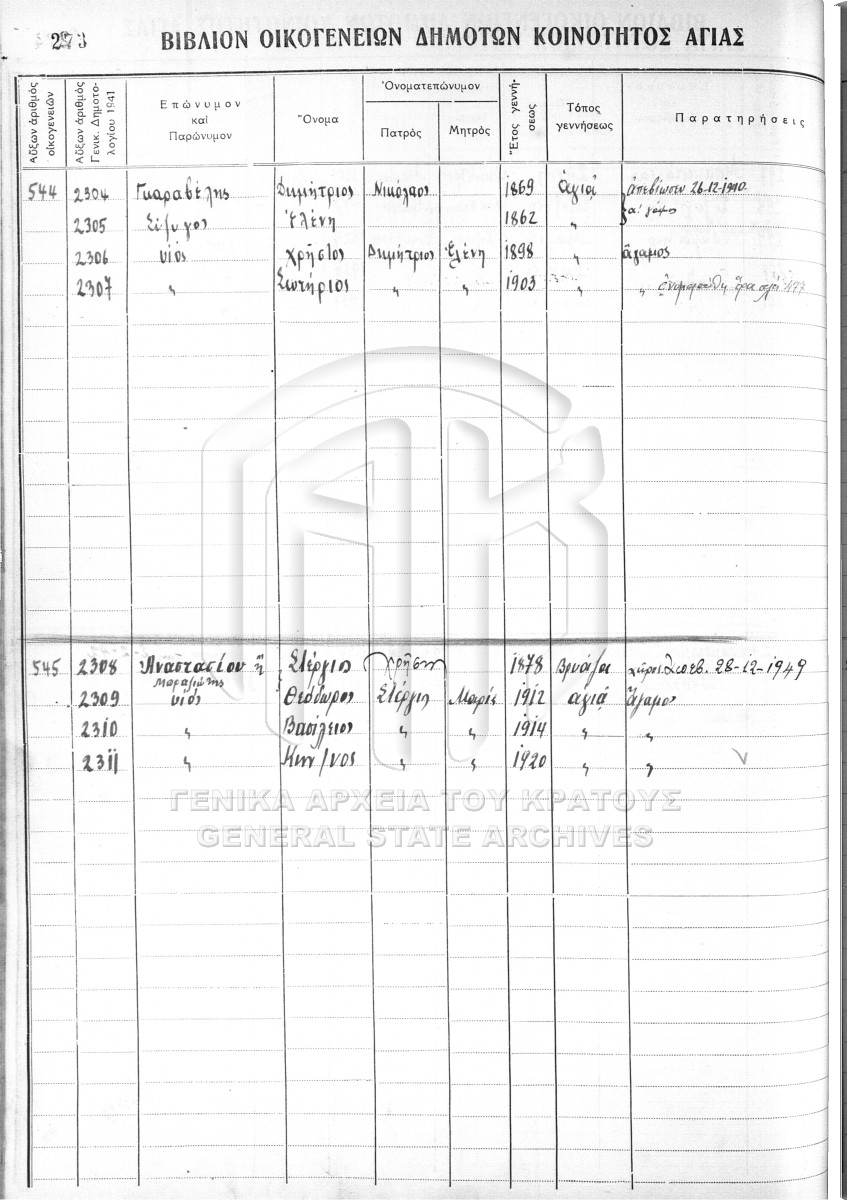 273 ΒΙΒΛΙΟΝ ΟΙΚΟΓΕΝΕΙΩΝ ΔΗΜΟΤΩΝ ΚΟΙΝΟΤΗΤΟΣ ΑΓΙΑΣ
Αὔξων ἀριθμὸς οἰκογενειῶν
Αὔξων ἀριθμὸς Γενικ. Δημοτολογίου 1941
Ἐπώνυμον καὶ Παρώνυμον
Ὄνομα
Ὀνοματεπώνυμον
Πατρὸς
Μητρὸς
Ἔτος γεννήσεως
Τόπος γεννήσεως
Παρατηρήσεις
544 2304 Γκαραβέλης Δημήτριος Νικόλαος 1869 ἁγιᾷ ἀπεβίωσεν 26-12-1940
2305 Σύζυγος Ἑλένη 1862 〃 α' γάμος
2306 υἱός χρῆστος Δημήτριος Ἑλένη 1898 〃 ἄγαμος
2307 〃 Σωτήριος 〃 〃 1903 〃 〃
545 2308 Αναστασίου ἢ Στέργιος χρῆστος 1878 28-12-1949
2309 υἱός Θεόδωρος Στέργιος Μαρία 1912 ἁγιᾷ Ἄγαμος
2310 〃 Βασίλειος 〃 〃 1914 〃 〃
2311 〃 Κων/νος 〃 〃 1920 〃 〃
ΓΕΝΙΚΑ ΑΡΧΕΙΑ ΤΟΥ ΚΡΑΤΟΥΣ
GENERAL STATE ARCHIVES